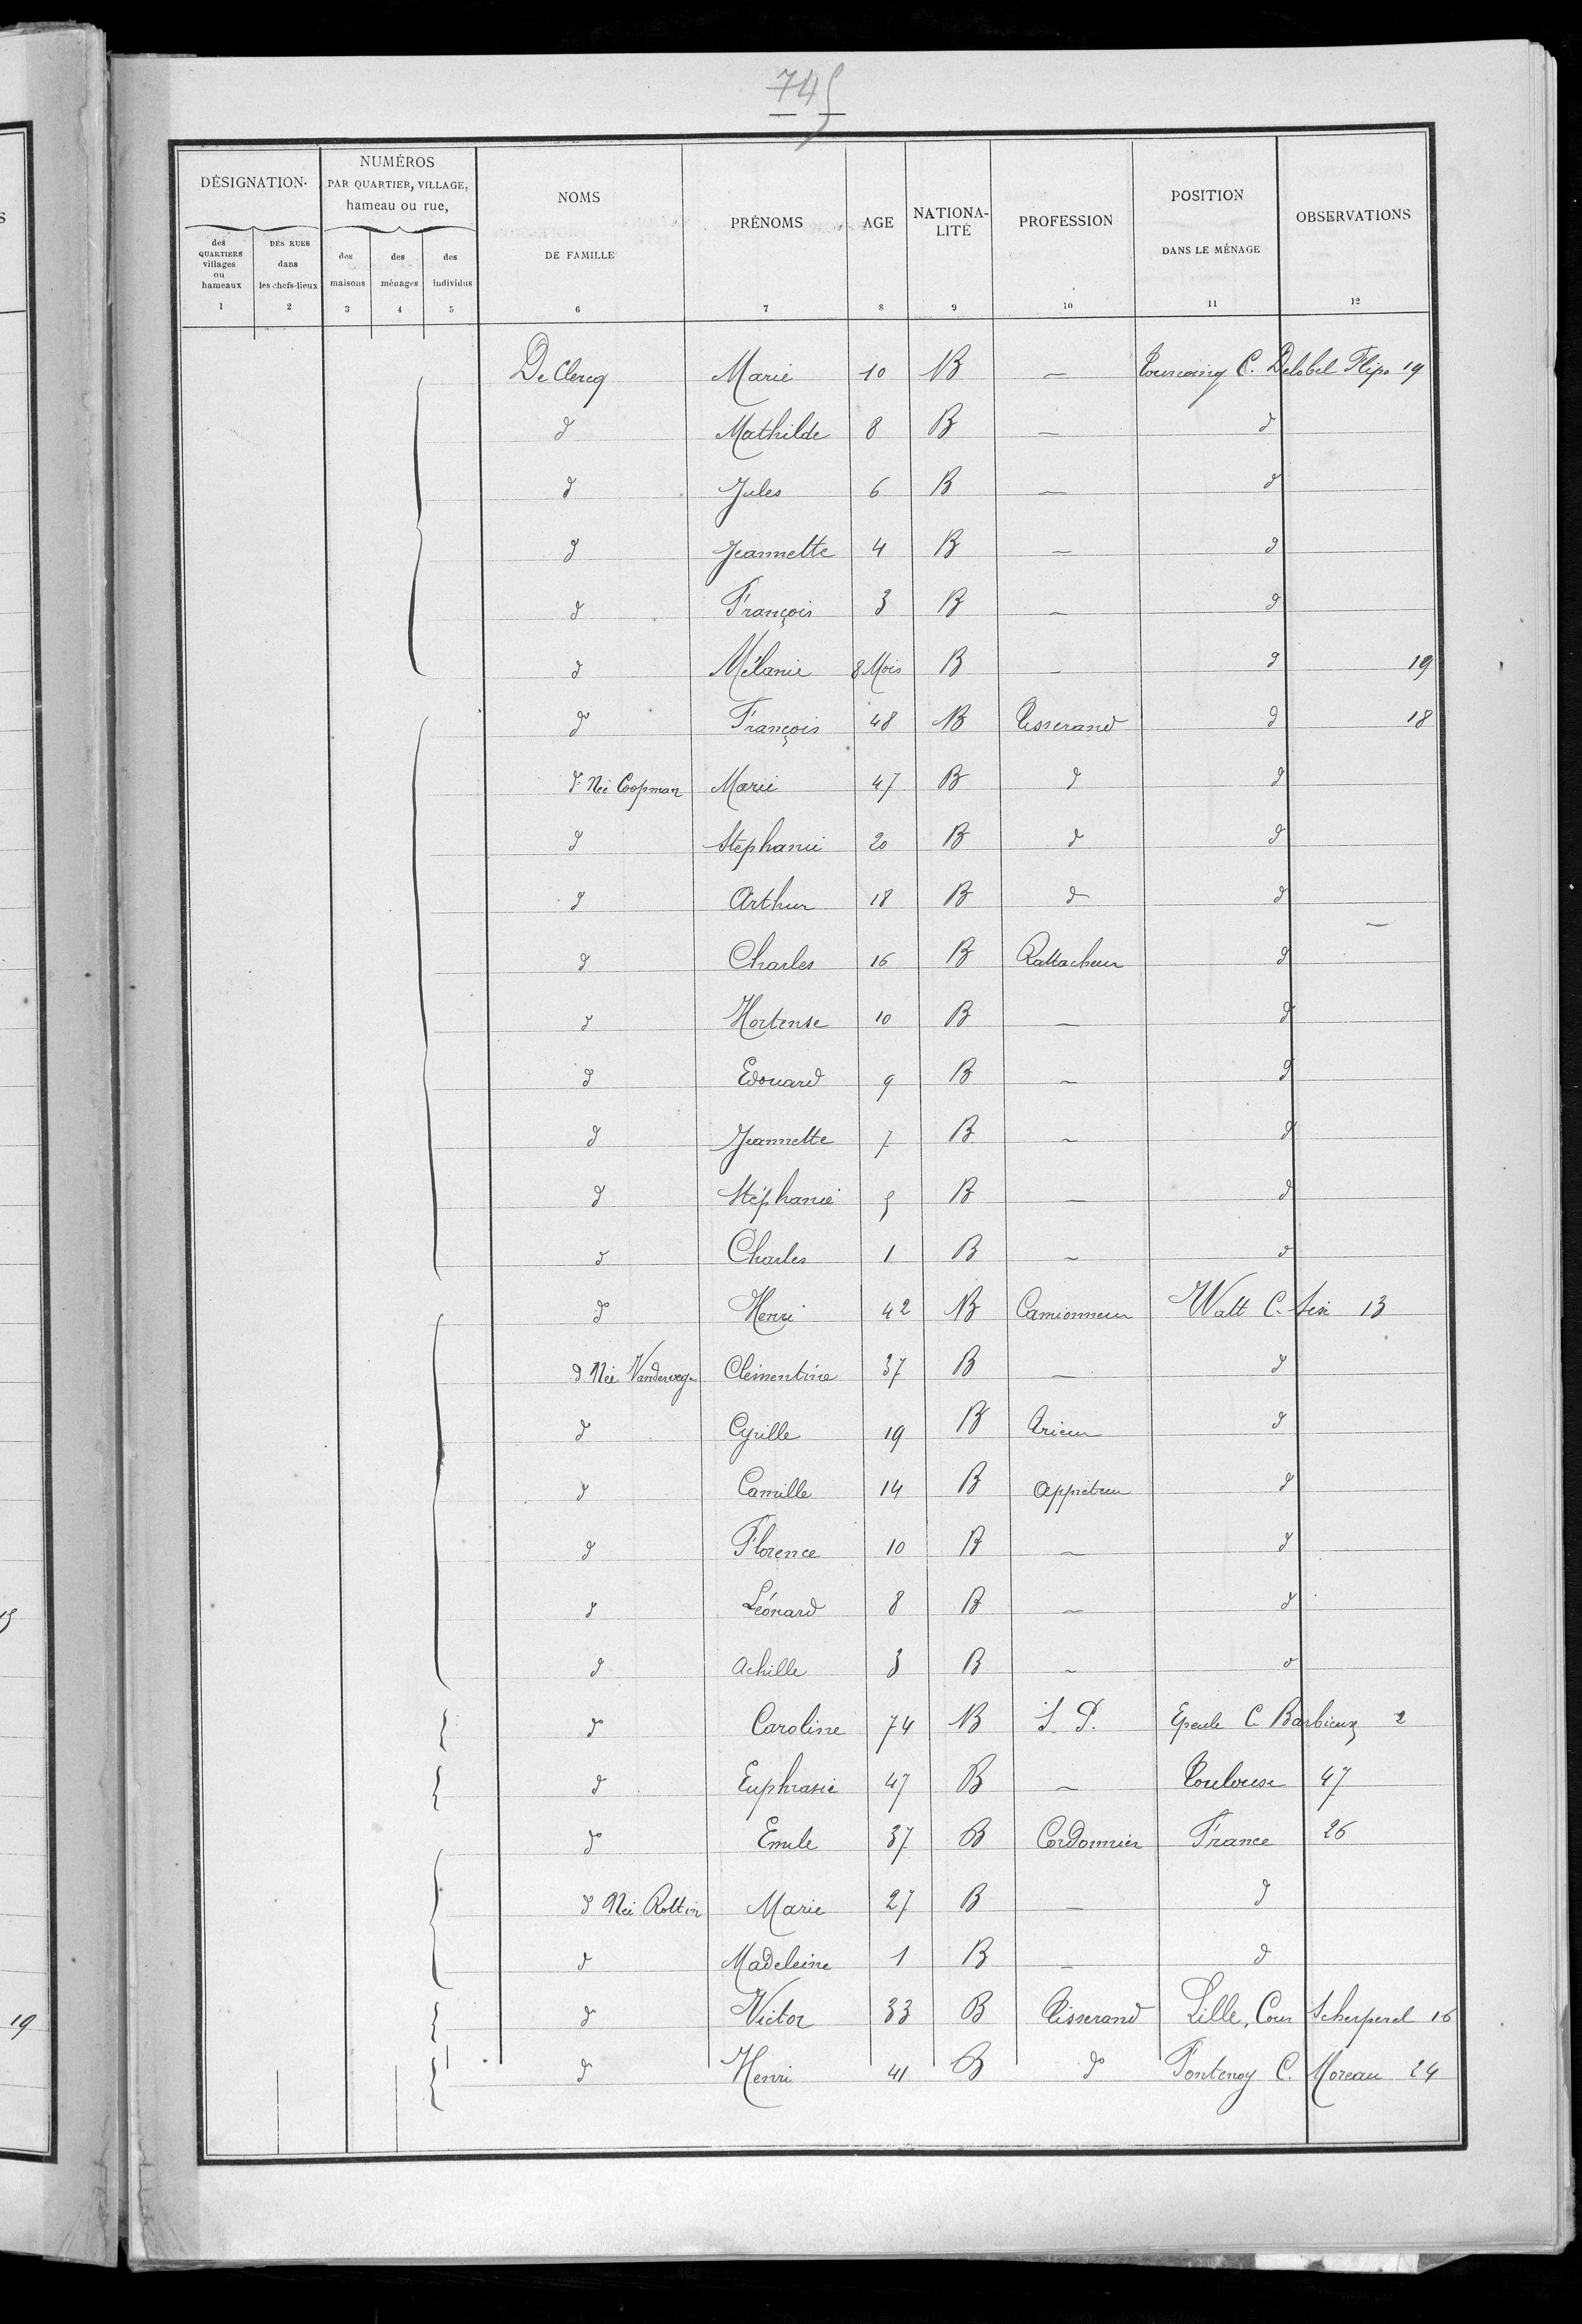 745
DÉSIGNATION. NUMÉROS PAR QUARTIER, VILLAGE, hameau ou rue, NOMS DE FAMILLE PRÉNOMS AGE NATIONALITÉ PROFESSION POSITION DANS LE MÉNAGE OBSERVATIONS
des QUARTIERS villages ou hameaux DES RUES dans les chefs-lieux des maisons des ménages des individus
1 2 3 4 5 6 7 8 9 10 11 12
De Clercq Marie 10 B — Tourcoing C. Delobel Flipo 19
d Mathilde 8 B — d
d Jules 6 B — d
d Jeannette 4 B — d
d François 3 B — d
d Mélanie 8 Mois B — d 19
d° François 48 B Tisserand d 18
d° Née Coopman Marie 47 B d d
d Stéphanie 20 B d d
d Arthur 18 B d d —
d Charles 16 B Rattacheur d
d Hortense 10 B — d
d Edouard 9 B — d
d Jeannette 7 B — d
d Stéphanie 5 B — d
d Charles 1 B — d
d° Henri 42 B Camionneur Watt C. Six 13
d Née Vanderveg. Clémentine 37 B — d
d Cyrille 19 B Trieur d
d Camille 14 B Apprêteur d
d Florence 10 B — d
d Léonard 8 B — d
d Achille 3 B — d
d° Caroline 74 B S. P. Epeule C. Barbieux 2
d Euphrasie 47 B — Toulouse 47
d° Emile 37 B Cordonnier France 26
d Née Rottin Marie 27 B — d
d Madeleine 1 B — d
d° Victor 33 B Tisserand Lille, Cour Scherperel 16
d° Henri 41 B d° Fontenoy C. Moreau 24
19